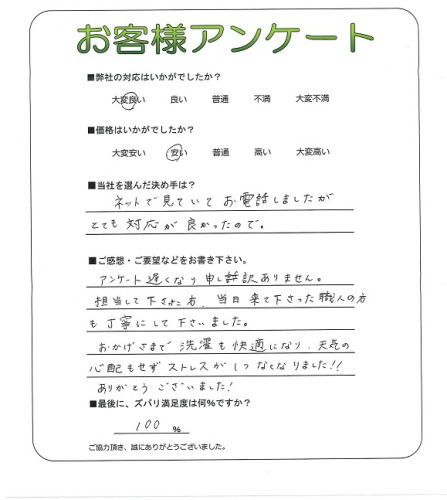 お客様アンケート
■弊社の対応はいかがでしたか？
大変良い 良い 普通 不満 大変不満
■価格はいかがでしたか？
大変安い 安い 普通 高い 大変高い
■当社を選んだ決め手は？
ネットで見ていて お電話しましたが
とても対応が良かったので。
■ご感想・ご要望などをお書き下さい。
アンケート遅くなり申し訳ありません。
担当して下された方、当日来て下さった職人の方
も丁寧にして下さいました。
おかげさまで洗濯も快適になり、天気の
心配もせずストレスが1つなくなりました!!
ありがとうございました!
■最後に、ズバリ満足度は何%ですか？
100 %
ご協力頂き、誠にありがとうございました。